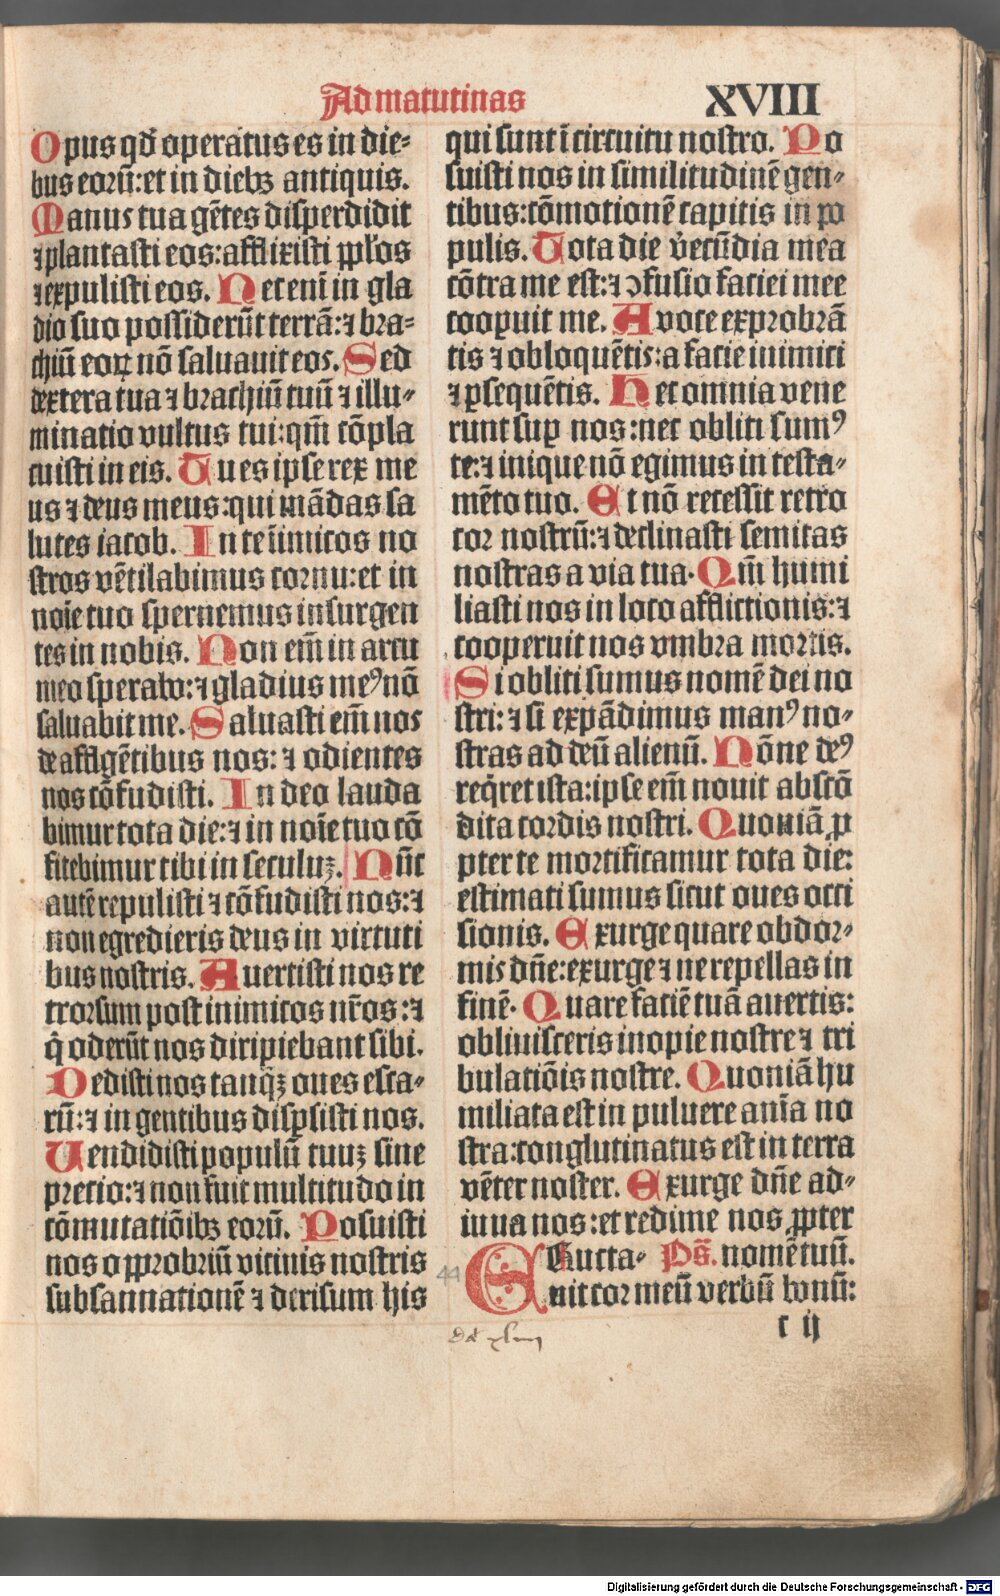 Ad matutinas
XVIII
Opus qď operatus es in die⸗
bus eorū:et in diebꝫ antiquis.
Manus tua gētes disperdidit
⁊plantasti eos:afflixisti ppl̄os
⁊expulisti eos. Nec eni in gla
dio suo possiderūt terrā:⁊ bra⸗
chiū eoꝝ nō saluauit eos. Sed
dextera tua ⁊ brachiū tuū ⁊ illu⸗
minatio vultus tui:qm̄ cōpla
cuisti in eis. Tu es ipse rex me
us ⁊ deus meus:qui mādas sa
lutes iacob. In te inimicos no
stros vētilabimus cornu:et in
noīe tuo spernemus insurgen
tes in nobis. Non em̄ in arcu
meo sperabo:⁊ gladius meꝰ nō
saluabit me. Saluasti em̄ nos
de affligētibus nos: ⁊ odientes
nos cōfudisti. In deo lauda
bimur tota die:⁊ in noīe tuo cō
fitebimur tibi in seculuꝫ. Nūc
autē repulisti ⁊ cōfudisti nos:⁊
non egredieris deus in virtuti
bus nostris. Auertisti nos re
trorsum post inimicos nr̄os:⁊
q̄ oderūt nos diripiebant sibi.
Dedisti nos tanq̄ꝫ oues esca⸗
rū:⁊ in gentibus dispsisti nos.
Vendidisti populū tuuꝫ sine
precio:⁊ non fuit multitudo in
cōmutatiōibꝫ eorū. Posuisti
nos opprobriū vicinis nostris
subsannationē ⁊ derisum his
qui sunt ī circuitu nostro. Po
suisti nos in similitudinē gen⸗
tibus:cōmotionē capitis in po
pulis. Tota die v̓ecūdia mea
cōtra me est:⁊ ↄfusio faciei mee
cooꝑuit me. A voce exprobrā
tis ⁊ obloquētis:a facie inimici
⁊ ꝑsequētis. Hec omnia vene
runt suꝑ nos:nec obliti sumꝰ
te:⁊ inique nō egimus in testa⸗
mēto tuo. Et nō recessit retro
cor nostrū:⁊ declinasti semitas
nostras a via tua. Qm̄ humi
liasti nos in loco afflictionis:⁊
cooperuit nos vmbra mortis.
Si obliti sumus nomē dei no
stri: ⁊ si expādimus manꝰ no⸗
stras ad deū alienū. Nōne deꝰ
req̇ret ista:ipse em̄ nouit abscō
dita cordis nostri. Quoniā ꝓ
pter te mortificamur tota die:
estimati sumus sicut oues occi
sionis. Exurge quare obdor⸗
mis dn̄e:exurge ⁊ ne repellas in
finē. Quare faciē tuā auertis:
obliuisceris inopie nostre ⁊ tri
bulatiōis nostre. Quoniā hu
miliata est in puluere anīa no
stra:conglutinatus est in terra
vēter noster. Exurge dn̄e ad⸗
iuua nos:et redime nos ꝓpter
Eructa⸗ Ps̄. nomē tuū.
uit cor meū verbū bonū:
44
c ij
Digitalisierung gefördert durch die Deutsche Forschungsgemeinschaft - DFG